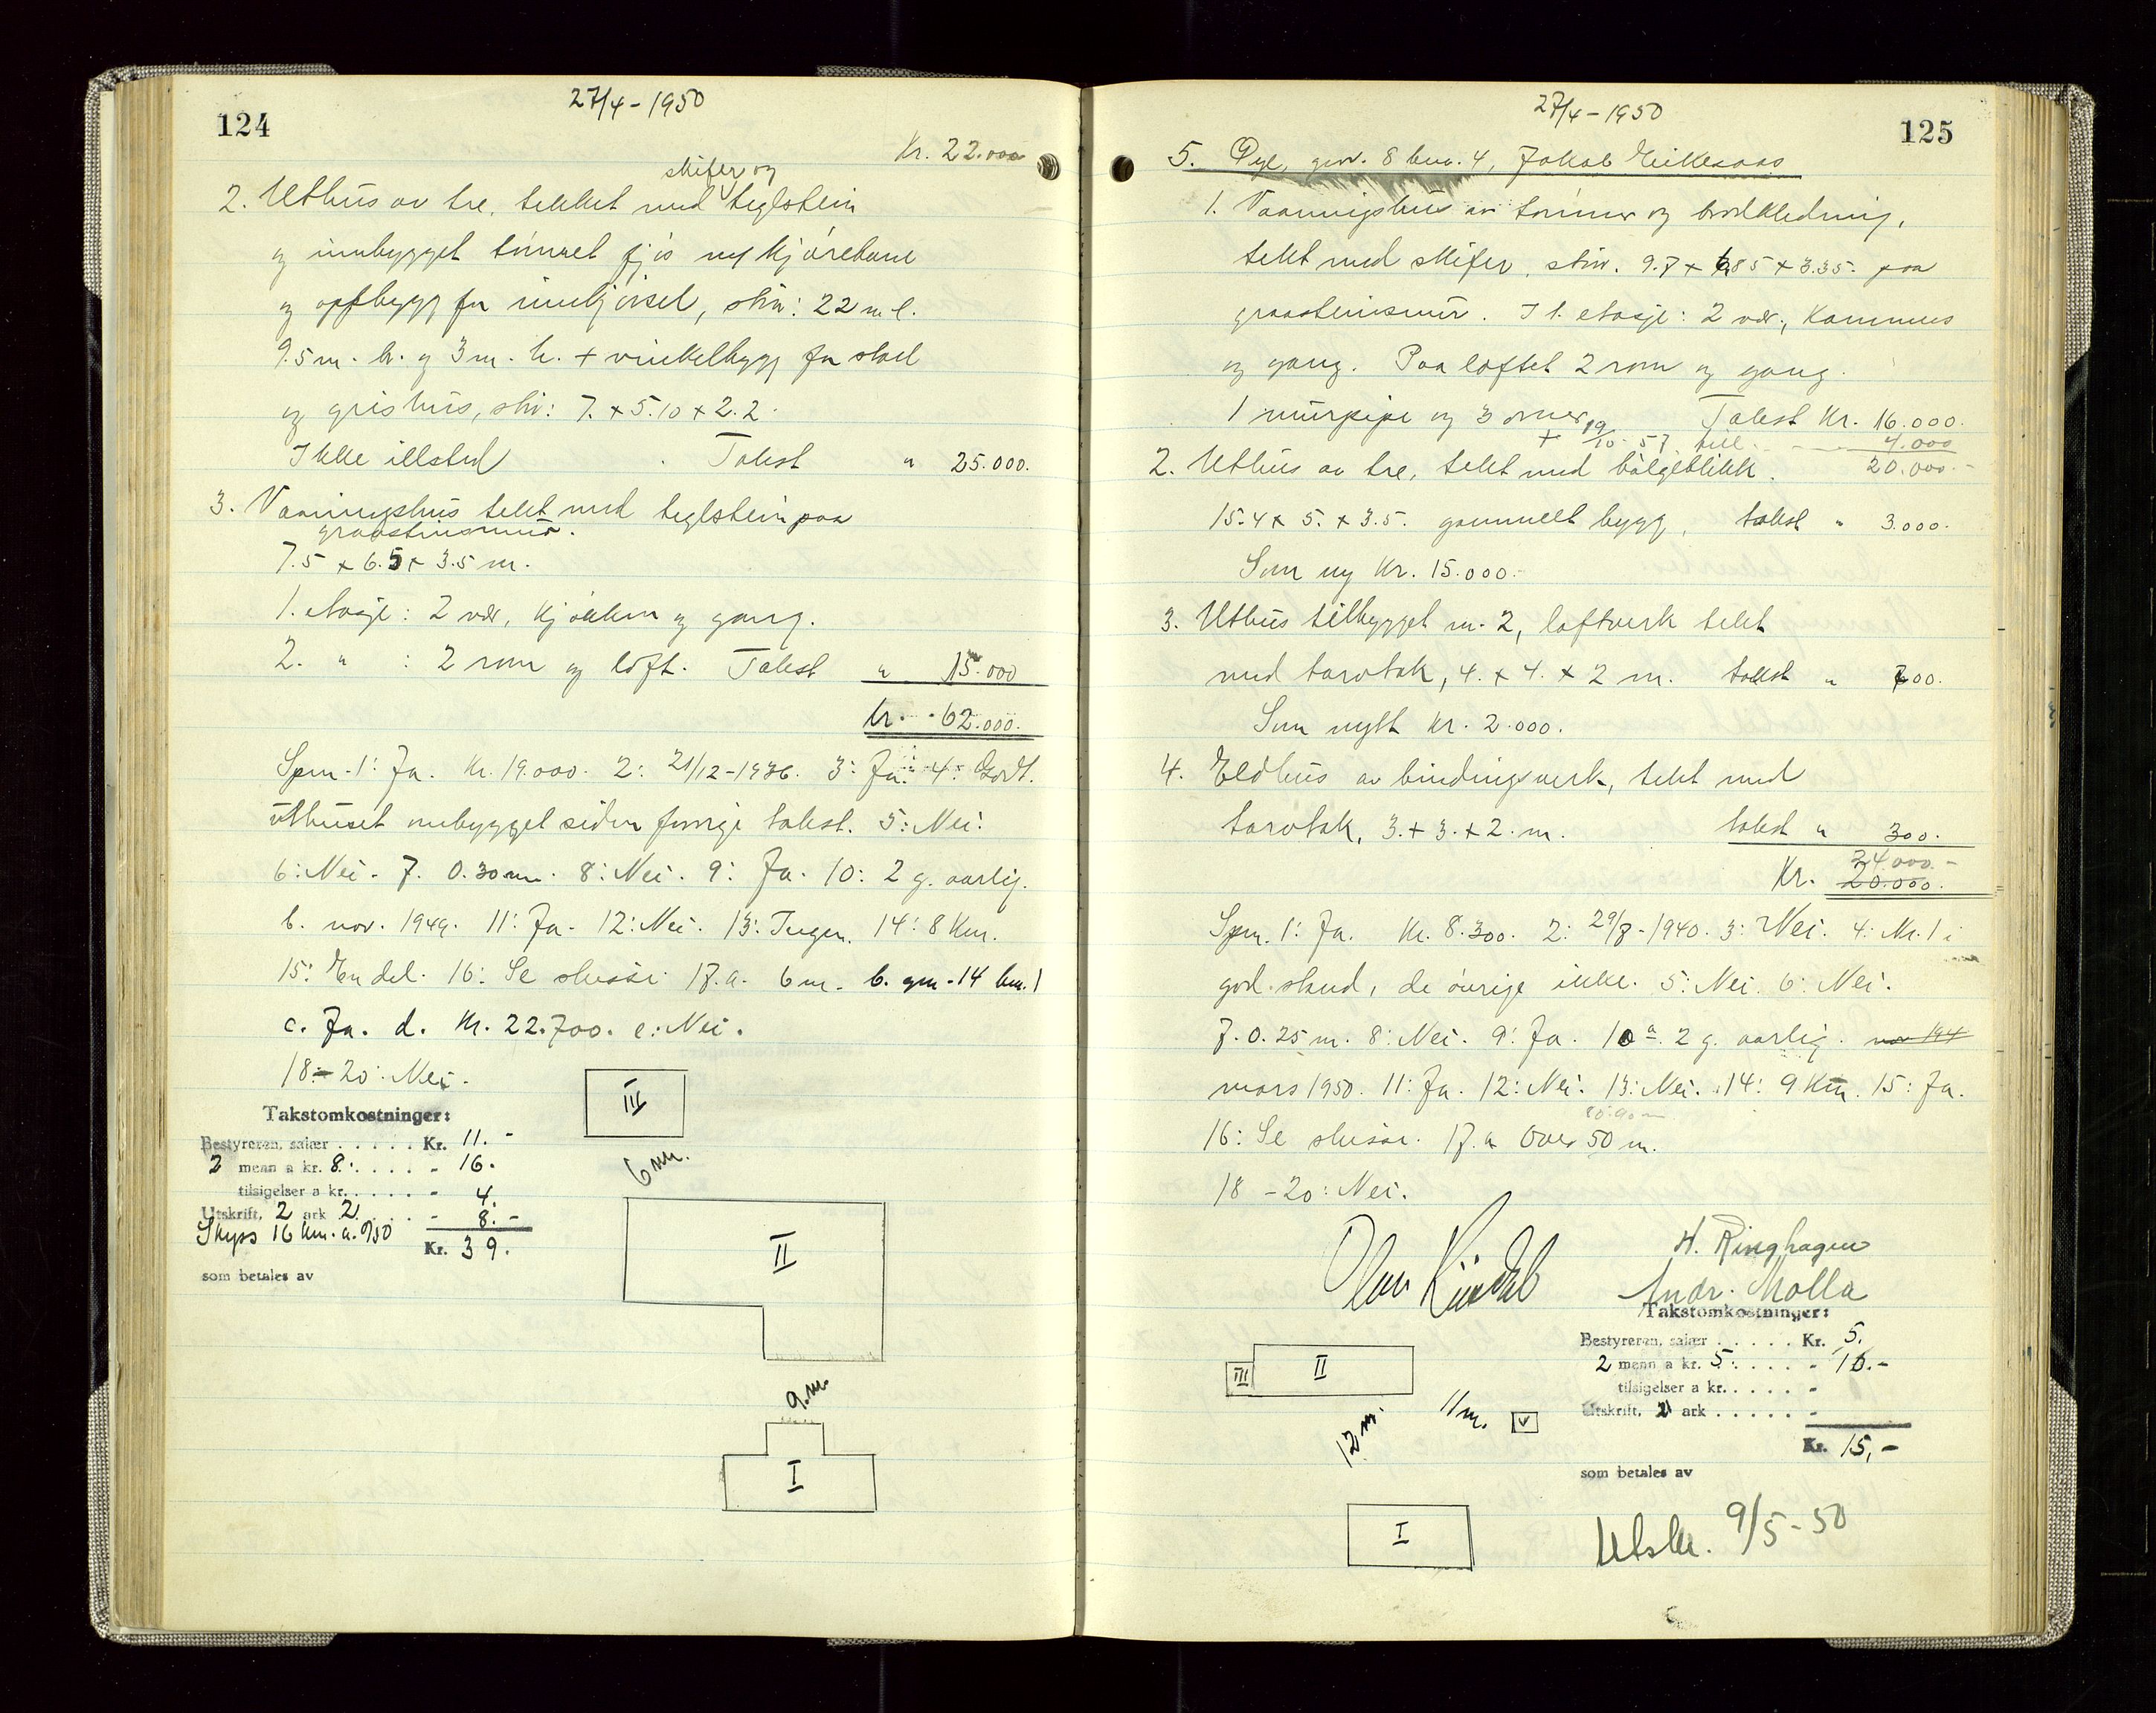 124
27/4 - 1950
Kr. 22.000
skifer og
2. Uthus av tre, tekket med teglstein
og innbygget tømret fjøs m/ kjørebane
og oppbygg for innkjørsel, størr: 22 m l.
9.5 m. br. og 3 m. h. + vinkelbygg for stall
og grishus, størr: 7. x 5.10 x 2.2.
Ikke illsted . Takst " 25.000.
3. Vaaningshus tekt med teglstein paa
graasteinsmur.
7.5 x 6.5 x 3.5 m.
1. etasje: 2 vær, kjøkken og gang.
2. " : 2 rom og loft. Takst " 15.000
kr. 62.000.
Spm. 1: Ja. Kr. 19.000. 2: 21/12-1936. 3: Ja. 4: Godt.
uthuset ombygget siden forrige takst. 5: Nei.
6: Nei. 7. 0.30 m. 8: Nei. 9: Ja. 10: 2 g. aarlig.
b. nov. 1949. 11: Ja. 12: Nei. 13: Ingen. 14: 8 Km.
15: En del. 16: Se skisse. 17.a. 6 m. b. gnr. 14 bnr. 1
c. Ja. d. Kr. 22.700. e: Nei.
18 - 20: Nei.
III
Takstomkostninger:
Bestyreren, salær ..... Kr. 11.-
2 menn a kr. 8. .... - 16.
tilsigelser a kr. .... - 4.
Utskrift, 2 ark 2 .... - 8.-
Skyss 16 km. a. 0/50
Kr. 39.
som betales av
6 m.
II
9. m.
I
27/4 - 1950
125
5. Øye, gnr. 8 bnr. 4, Jakob Eikesaas
1. Vaaningshus av tømmer og bordkledning,
tekt med skifer, størr. 9.7 x 6.85 x 3.35. paa
graasteinsmur. I 1. etasje: 2 vær, kammers
og gang. Paa loftet 2 rom og gang.
1 murpipe og 3 ovner, Takst Kr. 16.000.
+ 19/10-57 till. - - 4.000
20.000.-
2. Uthus av tre, tekt med bølgeblikk.
15.4 x 5. x 3.5. gammelt bygg, takst " 3.000.
Som ny Kr. 15.000.-
3. Uthus tilbygget nr. 2, laftverk tekt
med torvtak, 4. x 4. x 2 m. takst " 700.
Som nytt kr. 2.000.
4. Eldhus av bindingsverk, tekt med
torvtak, 3. x 3. x 2. m. takst " 300.
24000.-
Kr. 20.000.
Spm. 1: Ja. Kr. 8.300. 2: 29/8-1940. 3: Nei. 4: Nr. 1 i
god stand, de øvrige ikke. 5: Nei. 6: Nei.
7. 0.25 m. 8: Nei. 9: Ja. 10 a. 2 g. aarlig. nov 194
mars 1950. 11: Ja. 12: Nei. 13: Nei. 14: 9 Km. 15: Ja.
16: Se skisse. 17.a Over 50 m.
18 - 20: Nei.
H. Ringhagen
Andr. Molla
Takstomkostninger:
Bestyreren, salær ..... Kr. 5.
2 menn a kr. 5. .... - 10.-
tilsigelser a kr. .... -
Utskrift, ark ..... -
Kr. 15,-
som betales av
III II
12 m.
11 m.
V
I
Utskr. 9/5-50